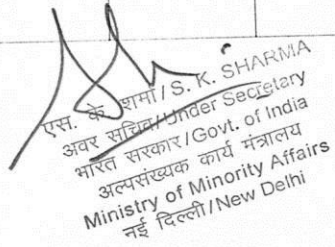 एस. के. शर्मा / S. K. SHARMA
अवर सचिव/Under Secretary
भारत सरकार/Govt. of India
अल्पसंख्यक कार्य मंत्रालय
Ministry of Minority Affairs
नई दिल्ली/New Delhi